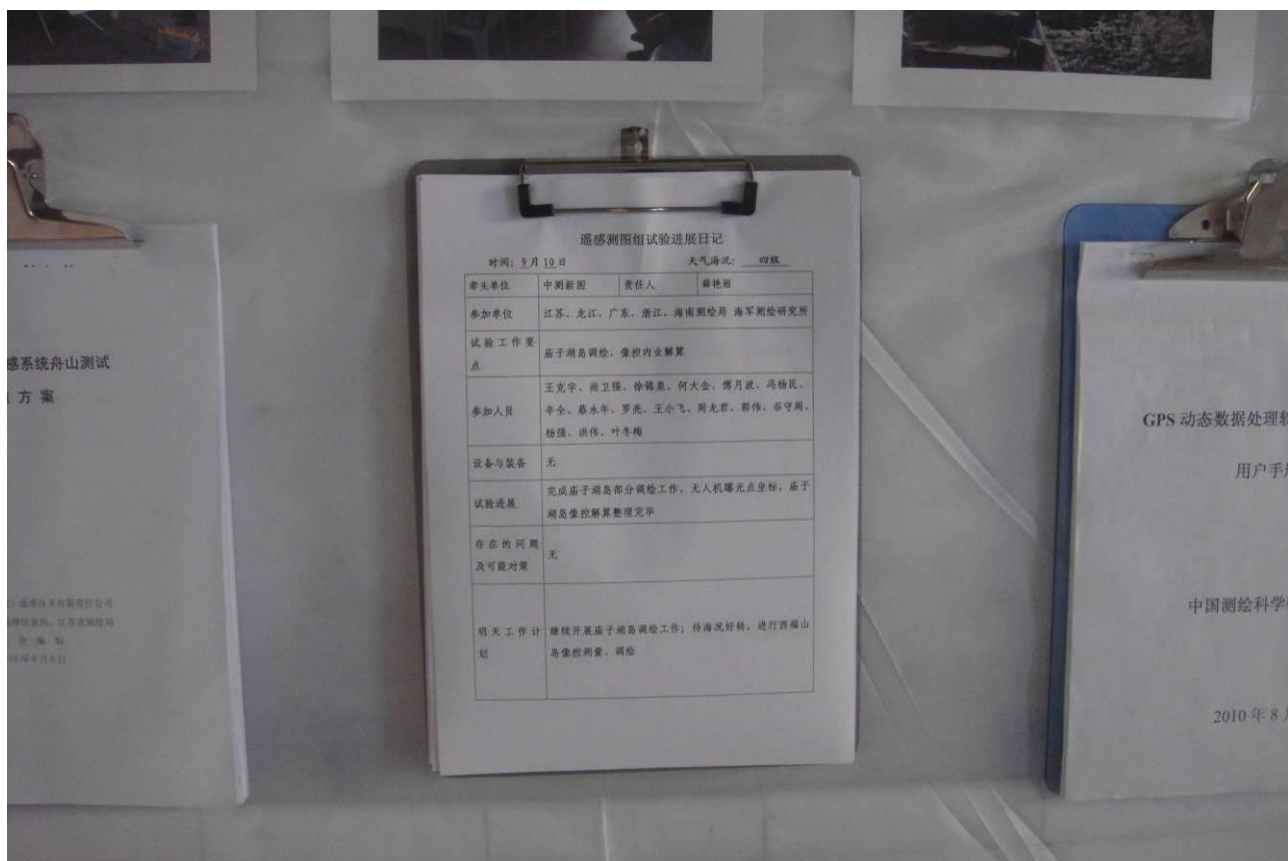 遥感测图组试验进展日记
时间：9月10日 天气海况：四级
牵头单位 中测新图 责任人 薛艳丽
参加单位 江苏、龙江、广东、浙江、海南测绘局 海军测绘研究所
试验工作要
点
庙子湖岛调绘、像控内业解算
参加人员
王克宇、尚卫强、徐锦泉、何大金、傅月波、冯杨民、
辛全、蔡永年、罗亮、王小飞、周龙君、郭伟、谷守周、
杨强、洪伟、叶冬梅
设备与装备 无
试验进展
完成庙子湖岛部分调绘工作，无人机曝光点坐标，庙子
湖岛像控解算整理完毕
存在的问题
及可能对策
无
明天工作计
划
继续开展庙子湖岛调绘工作；待海况好转，进行西福山
岛像控测量、调绘
感系统舟山测试
方案
遥感技术有限责任公司
江苏省测绘局
GPS 动态数据处理软
用户手册
中国测绘科学
2010 年 8 月